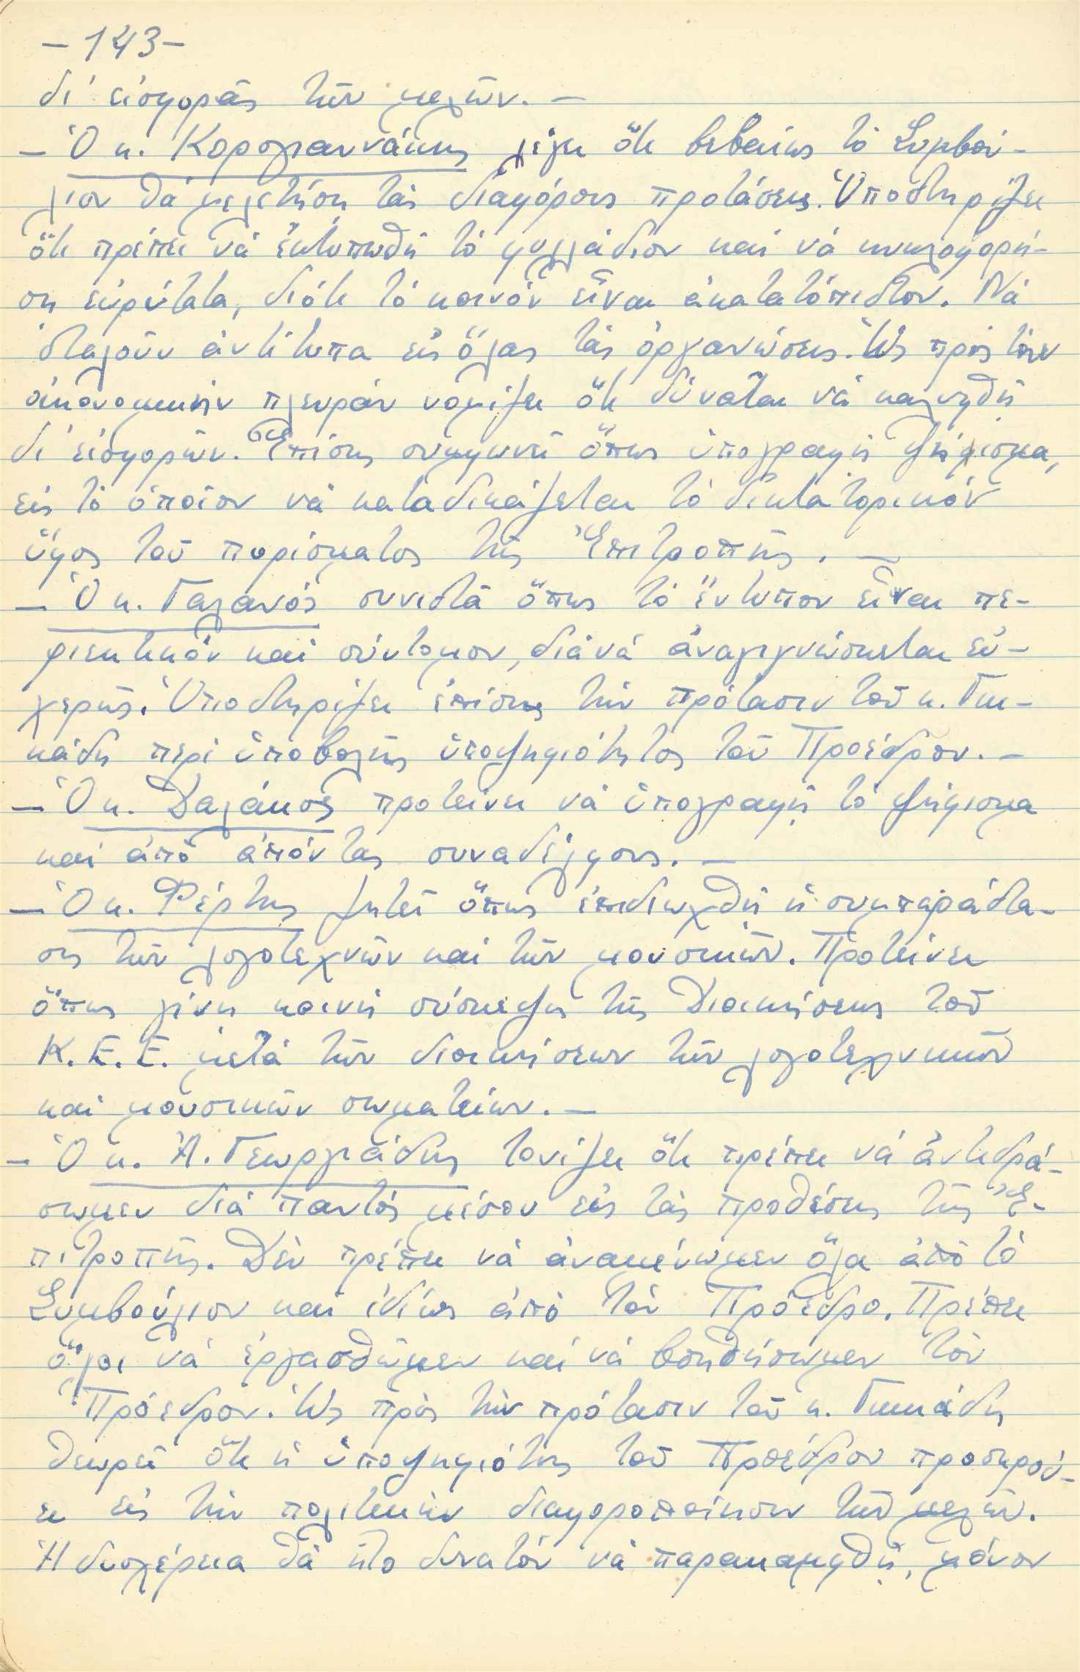 - 143 -
δι' εἰσφορᾶς τῶν μελῶν. —
— Ὁ κ. Κορογιαννάκης λέγει ὅτι βεβαίως τὸ Συμβού-
λιον θὰ μελετήσῃ τὰς διαφόρους προτάσεις. Ὑποστηρίζει
ὅτι πρέπει νὰ ἐκτυπωθῇ τὸ φυλλάδιον καὶ νὰ κυκλοφορή-
σῃ εὐρύτατα, διότι τὸ κοινὸν εἶναι ἀκατατόπιστον. Νὰ
σταλοῦν ἀντίτυπα εἰς ὅλας τὰς ὀργανώσεις. Ὡς πρὸς τὴν
οἰκονομικὴν πλευρὰν νομίζει ὅτι δύναται νὰ καλυφθῇ
δι' εἰσφορῶν. Ἐπίσης συμφωνεῖ ὅπως ὑπογραφῇ ψήφισμα,
εἰς τὸ ὁποῖον νὰ καταδικάζεται τὸ δικτατορικὸν
ὕφος τοῦ πορίσματος τῆς Ἐπιτροπῆς. —
— Ὁ κ. Γαλανός συνιστᾶ ὅπως τὸ ἔντυπον εἶναι πε-
ριεκτικὸν καὶ σύντομον, διὰ νὰ ἀναγιγνώσκεται εὐ-
χερῶς. Ὑποστηρίζει ἐπίσης τὴν πρότασιν τοῦ κ. Γκι-
κάδη περὶ ὑποβολῆς ὑποψηφιότητος τοῦ Προέδρου. —
— Ὁ κ. Δαλάκος προτείνει νὰ ὑπογραφῇ τὸ ψήφισμα
καὶ ἀπὸ ἀπόντας συναδέλφους. —
— Ὁ κ. Φέρτης ζητεῖ ὅπως ἐπιδιωχθῇ ἡ συμπαράστα-
σις τῶν λογοτεχνῶν καὶ τῶν μουσικῶν. Προτείνει
ὅπως γίνῃ κοινὴ σύσκεψις τῆς Διοικήσεως τοῦ
Κ.Ε.Ε. μετὰ τῶν διοικήσεων τῶν λογοτεχνικῶν
καὶ μουσικῶν σωματείων. —
— Ὁ κ. Ἀ. Γεωργιάδης τονίζει ὅτι πρέπει νὰ ἀντιδρά-
σωμεν διὰ παντὸς μέσου εἰς τὰς προθέσεις τῆς Ἐ-
πιτροπῆς. Δὲν πρέπει νὰ ἀναμένωμεν ὅλα ἀπὸ τὸ
Συμβούλιον καὶ ἰδίως ἀπὸ τὸν Πρόεδρο. Πρέπει
ὅλοι νὰ ἐργασθῶμεν καὶ νὰ βοηθήσωμεν τὸν
Πρόεδρον. Ὡς πρὸς τὴν πρότασιν τοῦ κ. Γκικάδη
θεωρεῖ ὅτι ἡ ὑποψηφιότης τοῦ Προέδρου προσκρού-
ει εἰς τὴν πολιτικὴν διαφοροποίησιν τῶν μελῶν.
Ἡ δυσχέρεια θὰ ἦτο δυνατὸν νὰ παρακαμφθῇ, μόνον